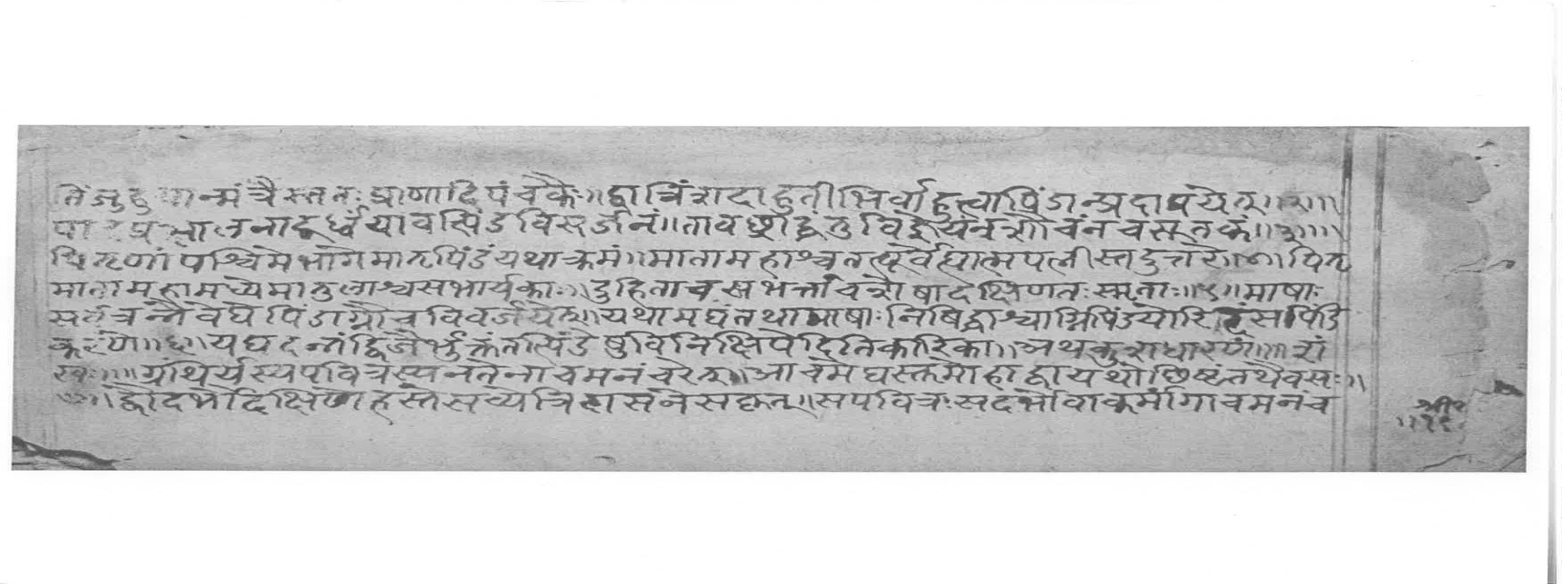 तिंजुहुयान्मंत्रैस्ततःप्राणादिपंचकैः॥द्वात्रिंशदाहुतीभिर्वाहुत्वापिंडान्प्रदापयेत्॥२॥
पादप्रक्षालनादूर्ध्वंयावत्पिंडविसर्जनं॥तावछ्राद्धंतुविज्ञेयंनशौचंनचसूतकं॥३॥
पितृणांपश्चिमेभागेमातृपिंडंयथाक्रमं॥मातामहाश्चतत्पूर्वेह्यात्मपत्नीस्तदुत्तरे॥४॥पितृ
मातामहामध्येमातुलाश्चसभार्यकाः॥दुहिताचस्रभर्त्ताचशेषादक्षिणतःस्मृताः॥५॥माषाः
सर्वत्रनैवेद्येपिंडाग्नौचविवर्जयेत्॥यथामद्यंतथामाषाःनिषिद्धाश्चाग्निपिंडयोरितिसपिंडि
करणे॥६॥यद्यदन्नंद्विजैर्भुक्तंतत्पिंडेषुविनिक्षिपेदितिकारिका॥अथकुशधारणं॥ शं
खः॥ग्रंथिर्यस्यपवित्रस्यनतेनाचमनंचरेत्॥आचमेद्यस्तुमोहाद्वायथोछिष्टंतथैवसः॥
द्वौदर्भौदक्षिणेहस्तेसव्येत्रिण्यासनेसकृत्॥सपवित्रःसदर्भोवाकर्मांगाचमनंच
श्री